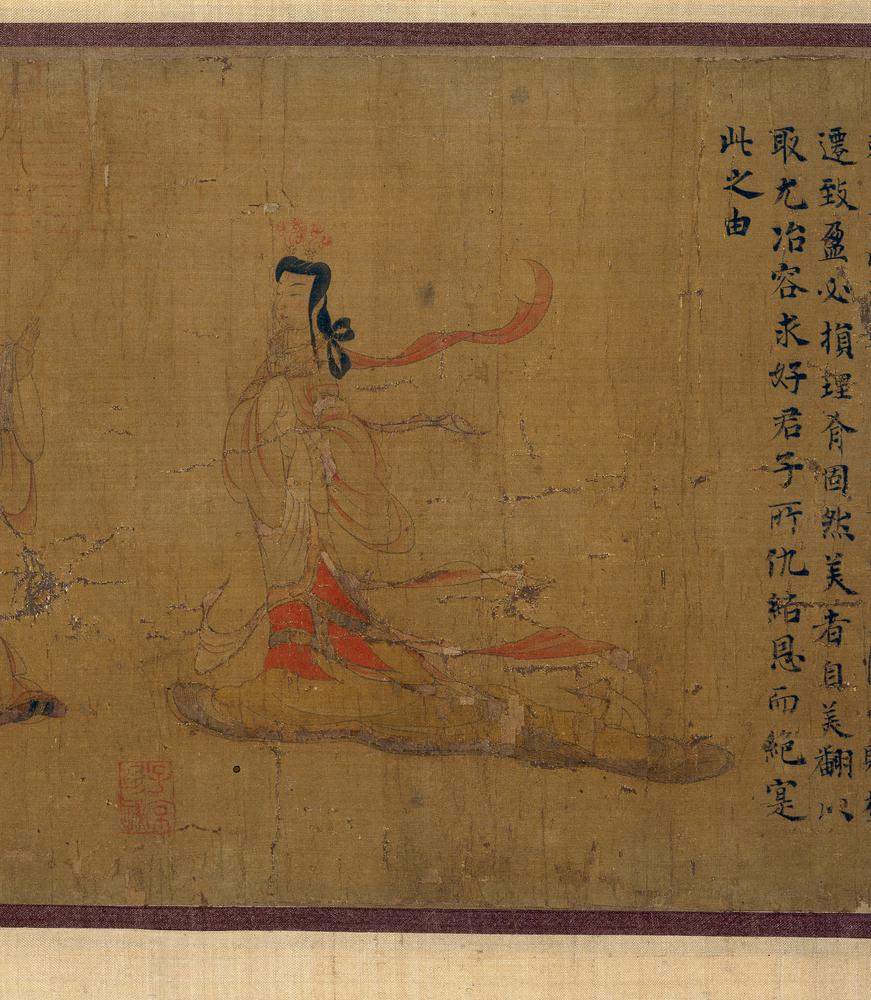 遷致盈必損理有固然美者自美翩以
取尤冶容求好君子所仇結恩而絕寔
此之由